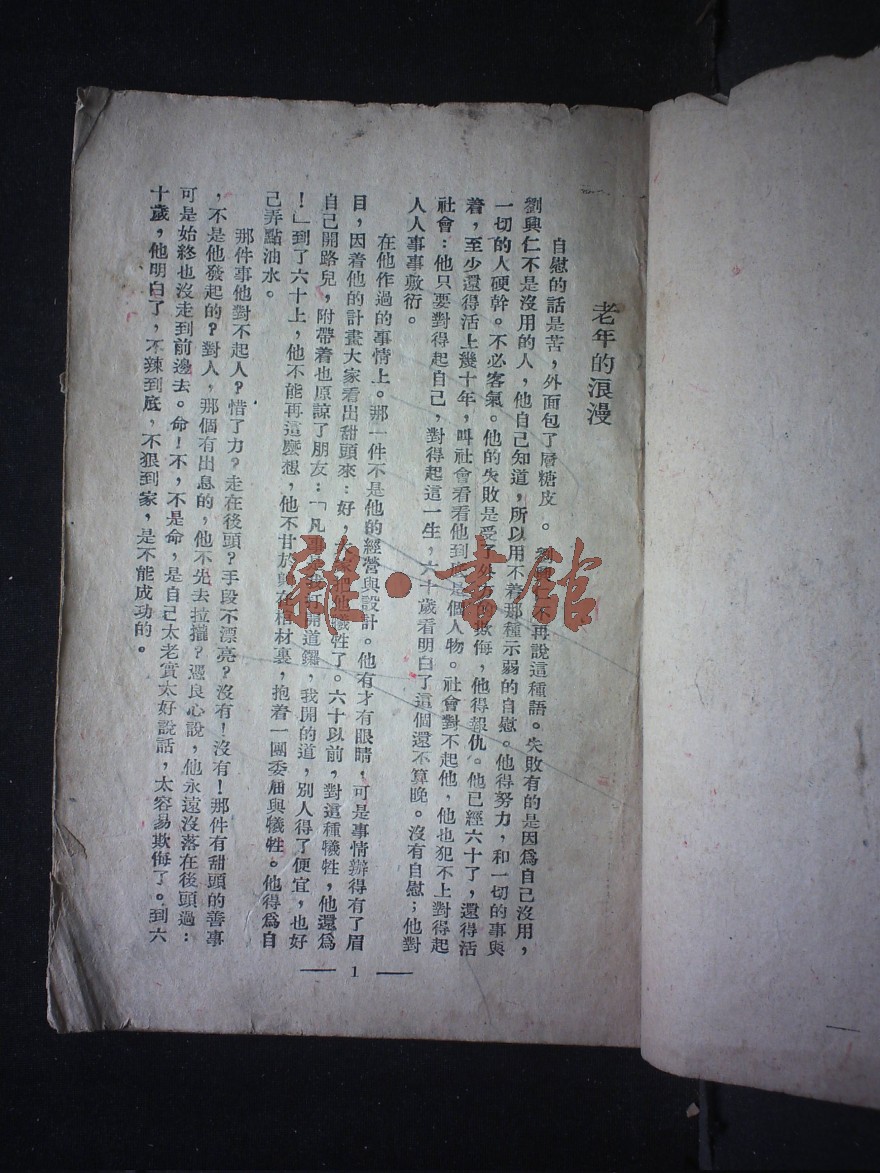 老年的浪漫
自慰的話是苦，外面包了層糖皮。劉興仁不再說這種語。失敗有的是因爲自己沒用，
劉興仁不是沒用的人，他自己知道，所以用不着那種示弱的自慰。他得努力，和一切的事與
一切的人硬幹。不必客氣。他的失敗是受了外方的欺侮，他得報仇。他已經六十了，還得活
着，至少還得活上幾十年，叫社會看看他到底是個人物。社會對不起他，他也犯不上對得起
社會：他只要對得起自己，對得起這一生，六十歲看明白了這個還不算晚。沒有自慰；他對
人人事事敷衍。
在他作過的事情上。那一件不是他的經營與設計。他有才有眼睛，可是事情辦得有了眉
目，因着他的計畫大家看出甜頭來：好，大家把他犧牲了。六十以前，對這種犧牲，他還爲
自己開路兒，附帶着也原諒了朋友：「凡事是我打開道鑼，我開的道，別人得了便宜，也好
！」到了六十上，他不能再這麼想，他不甘於 在棺材裏，抱着一團委屈與犧牲。他得爲自
己弄點油水。
那件事他對不起人？惜了力？走在後頭？手段不漂亮？沒有！沒有！那件有甜頭的善事
，不是他發起的？對人，那個有出息的，他不先去拉攏？憑良心說，他永遠沒落在後頭過：
可是始終也沒走到前邊去。命！不，不是命，是自己太老實太好說話，太容易欺侮了。到六
十歲，他明白了，不辣到底，不狠到家，是不能成功的。
— 1 —
雜·書館